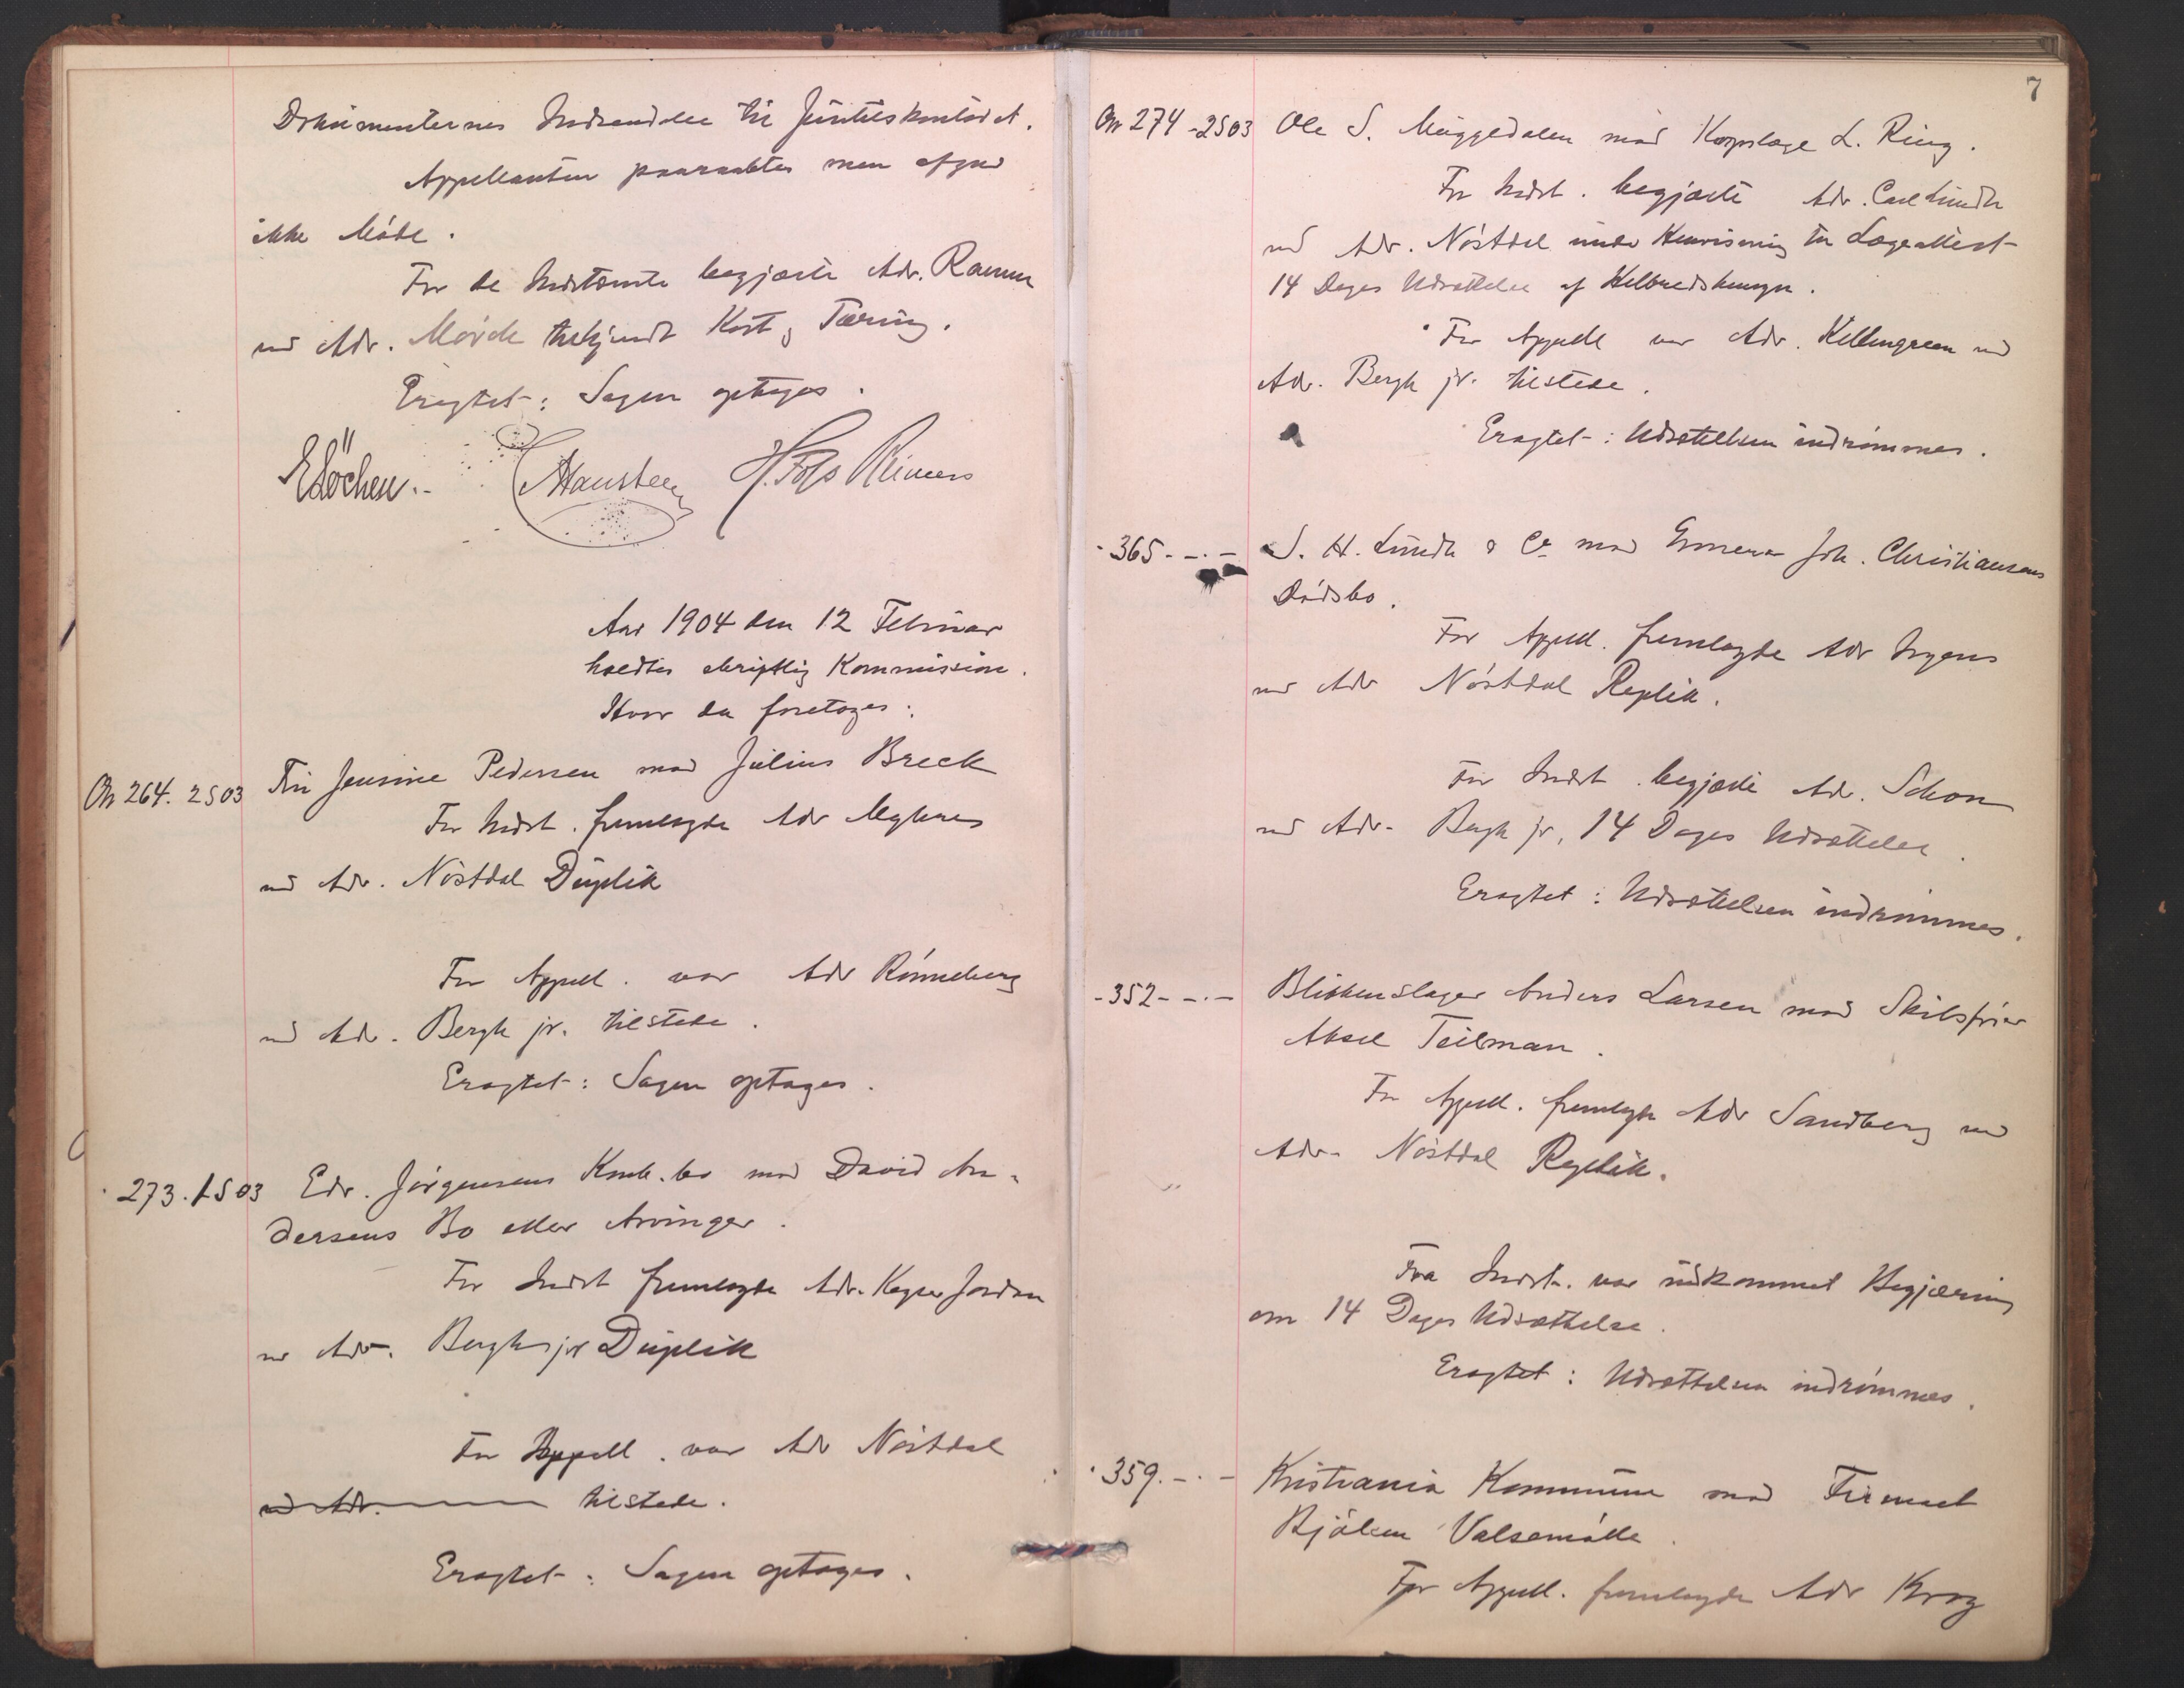 Dokumenternes Indsendelse til Justitskontoret.
Appellanten paaraabtes men afgav
ikke Møde.
For de Indstævnte begjærte Adv. Ramm
ved Adv. Mørch tilkjendt Kost og Tæring.
Eragtet: Sagen optages.
E Løchen.. Hansteen H. Foss Reimers
Aar 1904 den 12 Februar
holdtes skriftlig Kommission.
Hvor da foretages:
On 264. 2S03 Fru Jensine Pedersen mod Julius Breck
For Indst. fremlagde Adv
ved Adv. Nøstdal Duplik
For Appell. var Adv Rønneberg
ved Adv. Bergh jr. tilstede.
Eragtet: Sagen optages.
" 273. 1S03 Edv. Jørgensens Konk.bo mod David An-
dersens Bo eller Arvinger.
For Indst fremlagde Adv. Keyser Jordan
ved Adv. Bergh jr Duplik
For Appell. var Adv Nøstdal
ved Adv. tilstede.
Eragtet: Sagen optages.
7
On 274 - 2S03 Ole S. Muggedalen mod Korpslæge L. Ring.
For Indst. begjærte Adv. Carl Lundh
ved Adv. Nøstdal under Henvisning til Lægeattest
14 Dages Udsættelse af Helbredshensyn.
For Appell var Adv. Kellengreen ved
Adv. Bergh jr. tilstede.
Eragtet: Udsættelsen indrømmes.
- 365 - -.- S. H. Lundh & Co mod Joh. Christiansens
Dødsbo.
For Appell. fremlagde Adv Irgens
ved Adv Nøstdal Replik.
For Indst. begjærte Adv. Schou
ved Adv. Bergh jr. 14 Dages Udsættelse.
Eragtet: Udsættelsen indrømmes.
- 352 - -.- Blikkenslager Anders Larsen mod Skibsfører
Aksel Teilman.
For Appell. fremlagde Adv Sandberg ved
Adv. Nøstdal Replik.
Fra Indst. var indkommet Begjæring
om 14 Dages Udsættelse.
Eragtet: Udsættelsen indrømmes.
" 359. -.- Kristiania Kommune mod Firmaet
Bjølsen Valsemølle.
For Appell. fremlagde Adv Krog